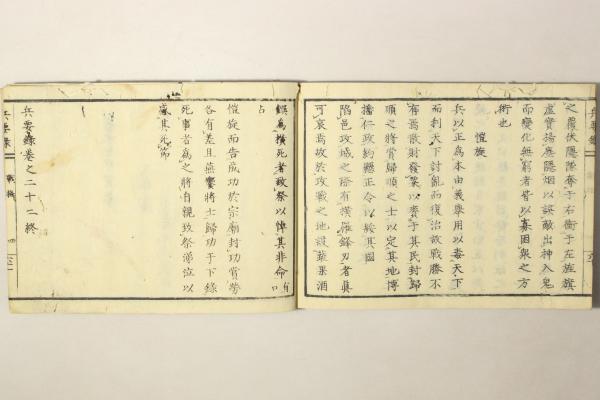 之覆伏隱隊奔于右衝于左旌旗
虛實揚塵隱烟以誤敵出神入鬼
而變化無窮者皆以寡困衆之方
術也
愷旋
兵以正爲本由義擧用以毒天下
而利天下討亂而復治故戰勝不
有焉散財發粟以賚于其民封歸
順之將賞歸順之士以定其地博
播仁政約縣正令以綏其國
陷邑攻城之際有橫罹鋒刃者眞
可哀焉故於攻戰之地設蔬果酒
饌爲橫死者致祭以悼其非命
愷旋而告成功於宗廟封功賞勞
各有差且盛饗將士歸功于下錄
死事者爲之將自親致祭涕泣以
感其死節
兵要錄卷之二十二終
兵要錄
戰格
兵要錄